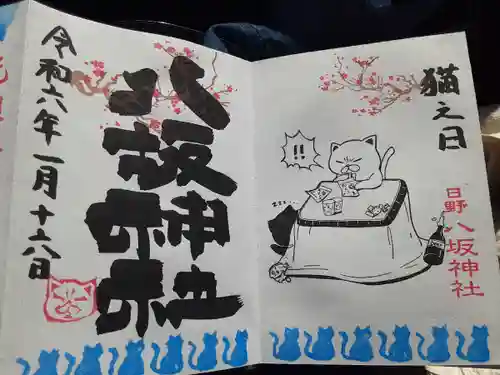 猫之日
!!
zzz...
日野八坂神社
八坂神社
令和六年一月十六日